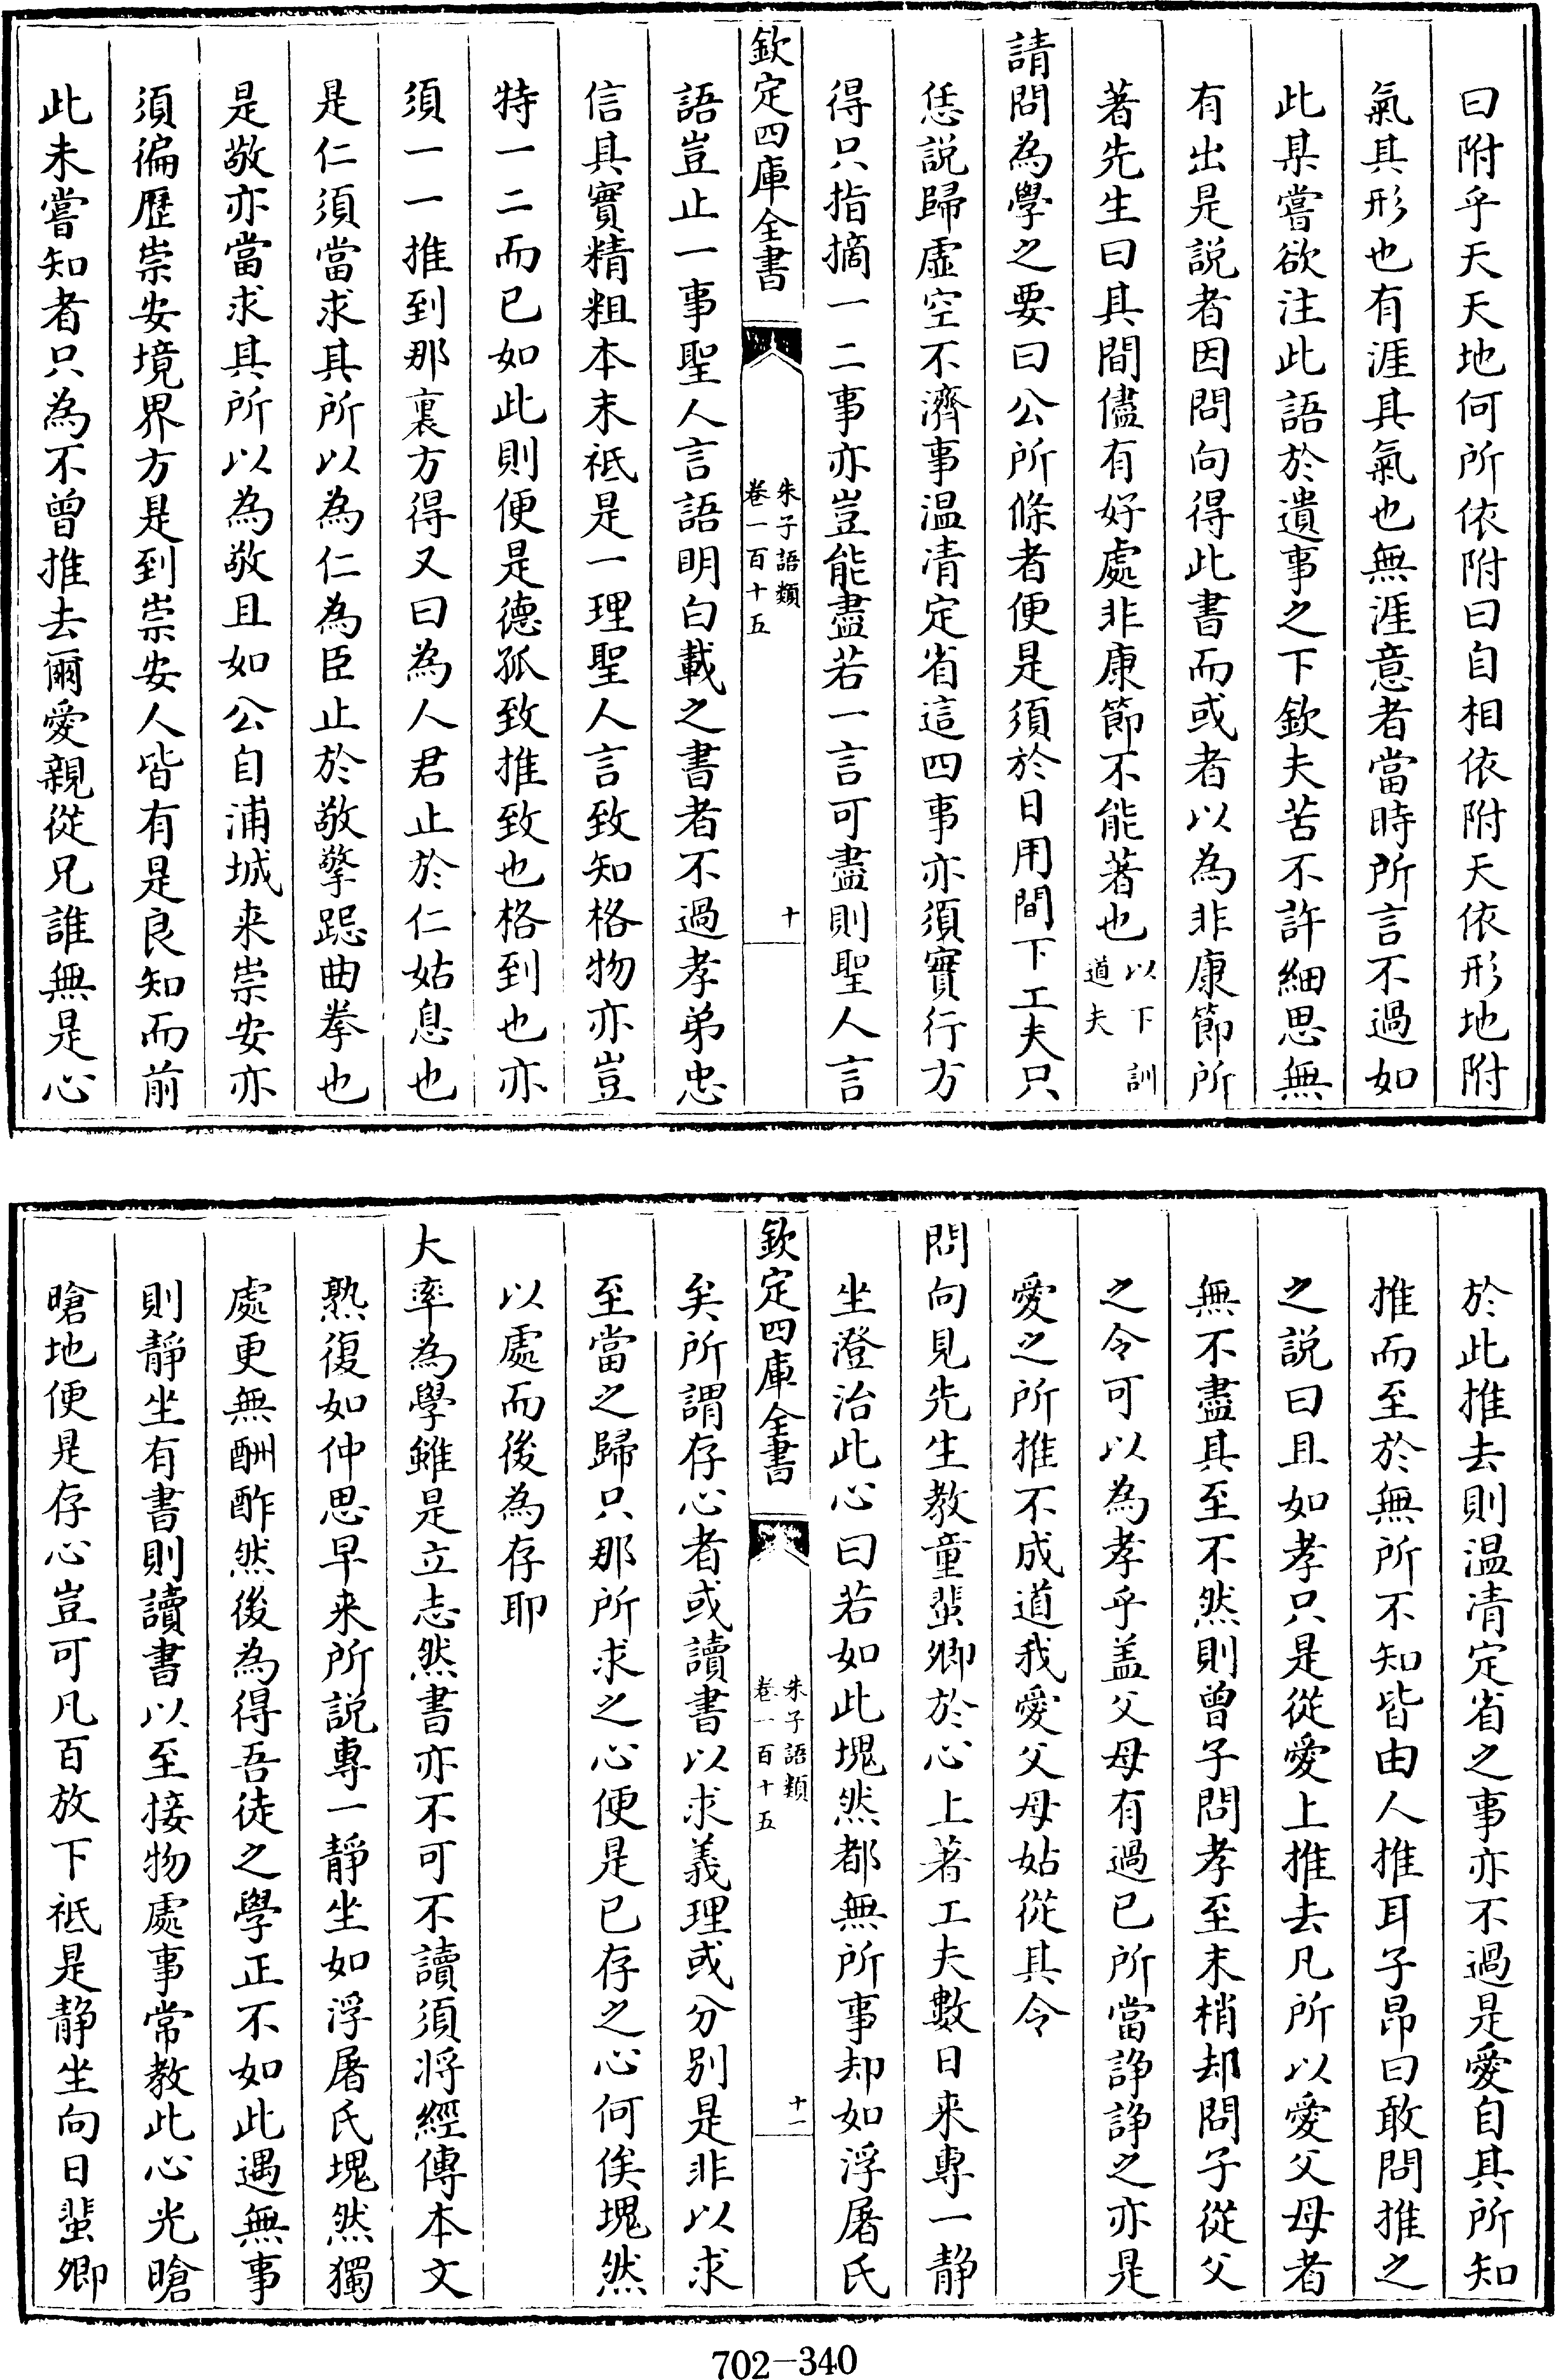 曰附乎天天地何所依附曰自相依附天依形地附
氣其形也有涯其氣也無涯意者當時所言不過如
此某嘗欲注此語於遺事之下欽夫苦不許細思無
有出是説者因問向得此書而或者以為非康節所
著先生曰其間儘有好處非康節不能著也以下訓
道夫
請問為學之要曰公所條者便是須於日用間下工夫只
恁説歸虛空不濟事温凊定省這四事亦須實行方
得只指摘一二事亦豈能盡若一言可盡則聖人言
欽定四庫全書
朱子語類
卷一百十五
十
語豈止一事聖人言語明白載之書者不過孝弟忠
信其實精粗本末祗是一理聖人言致知格物亦豈
特一二而已如此則便是德孤致推致也格到也亦
須一一推到那裏方得又曰為人君止於仁姑息也
是仁須當求其所以為仁為臣止於敬擎跽曲拳也
是敬亦當求其所以為敬且如公自浦城来崇安亦
須徧歷崇安境界方是到崇安人皆有是良知而前
此未嘗知者只為不曾推去爾愛親從兄誰無是心
於此推去則温凊定省之事亦不過是愛自其所知
推而至於無所不知皆由人推耳子昂曰敢問推之
之説曰且如孝只是從愛上推去凡所以愛父母者
無不盡其至不然則曾子問孝至末梢却問子從父
之令可以為孝乎盖父母有過已所當諍諍之亦是
愛之所推不成道我愛父母姑從其令
問向見先生教童蜚卿於心上著工夫數日来專一静
坐澄治此心曰若如此塊然都無所事却如浮屠氏
欽定四庫全書
朱子語類
卷一百十五
十一
矣所謂存心者或讀書以求義理或分别是非以求
至當之歸只那所求之心便是已存之心何俟塊然
以處而後為存耶
大率為學雖是立志然書亦不可不讀須將經傳本文
熟復如仲思早来所説專一靜坐如浮屠氏塊然獨
處更無酬酢然後為得吾徒之學正不如此遇無事
則靜坐有書則讀書以至接物處事常教此心光㬻
㬻地便是存心豈可凡百放下祗是静坐向日蜚卿
702-340